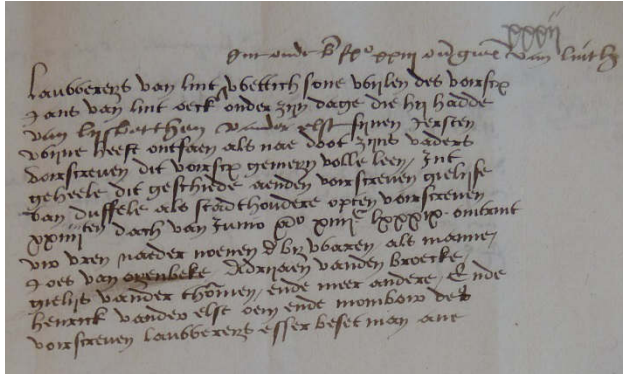 xxxii
van lint
Lauwereys van lint wettich sone wijlen des voirscr
Jans van lint oeck onder zijn dage die hij hadde
van lijsbetthen vander elst sijnen iersten
wijve heeft ontfaen als nae doot zijns vaders
voirscreven dit voirscr gemeyn volle leen, Int
geheele dit geschiede aenden voirscreven gielijse
van duffele als stadthoudere opten voirscreven
xxiiii ten dach van Junio xiiii c lxxxix omtrent
viii uren naeder noenen d bij waren als manne,
Joes van oyenbeke Adriaen vanden broecke,
gielijs vander thommen, ende meer andere, Ende
henrick vander elst oem ende momboir des
voirscreven Lauwereys es ser beset man ane